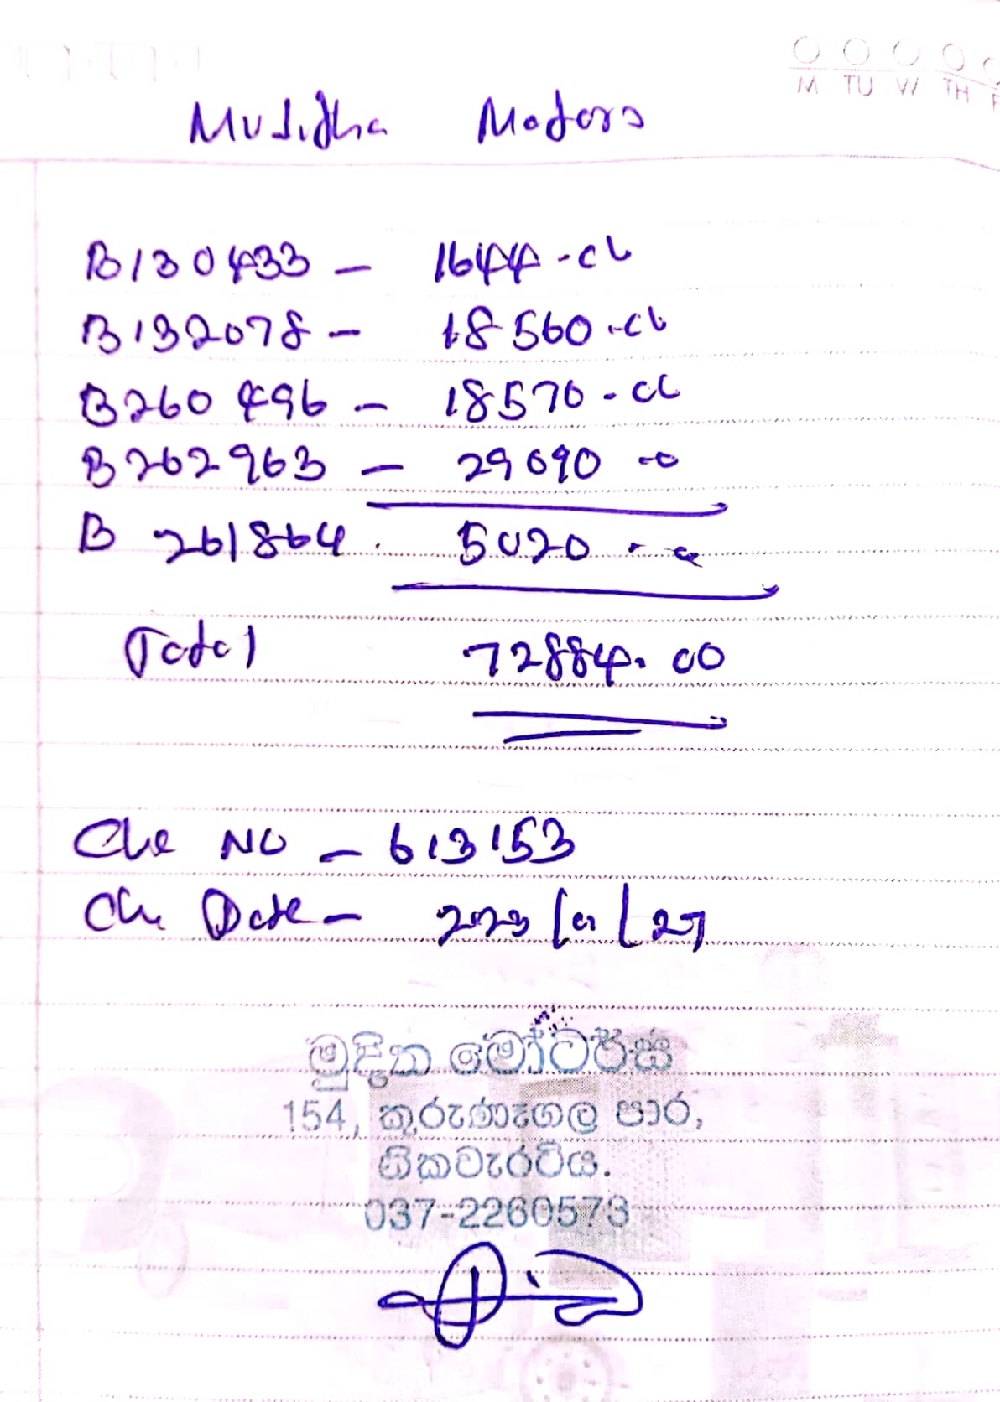 M TU W TH F
Muditha Motors
B130433 - 1644.00
B132078 - 18560.00
B260496 - 18570.00
B262963 - 29090.00
B 261864 5020.00
Total 72884.00
Che NO - 613153
Che Date - 2023/01/27
මුදිත මෝටර්ස්
154, කුරුණෑගල පාර,
නිකවැරටිය.
037-2260573